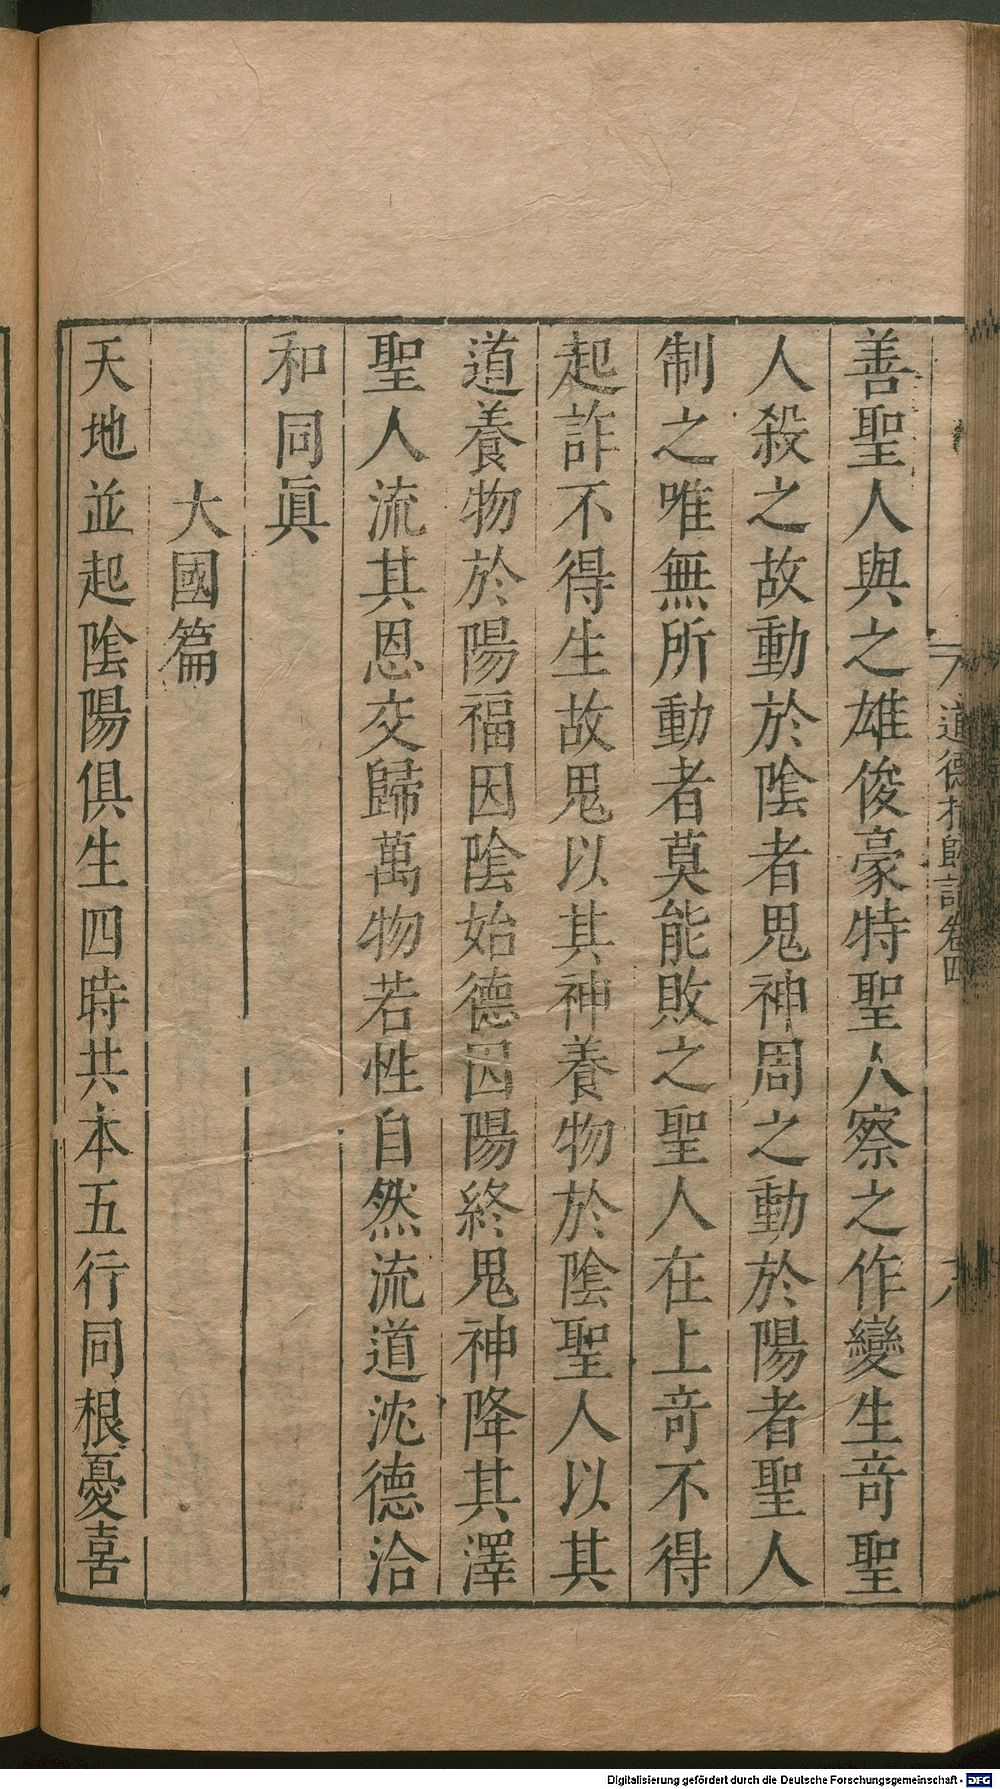 善聖人與之雄俊豪特聖人察之作變生奇聖
人殺之故動於陰者鬼神周之動於陽者聖人
制之唯無所動者莫能敗之聖人在上奇不得
起詐不得生故鬼以其神養物於陰聖人以其
道養物於陽福因陰始德因陽終鬼神降其澤
聖人流其恩交歸萬物若性自然流道沈德洽
和同眞
大國篇
天地並起陰陽俱生四時共本五行同根憂喜
道德指歸論卷四
Digitalisierung gefördert durch die Deutsche Forschungsgemeinschaft - DFG